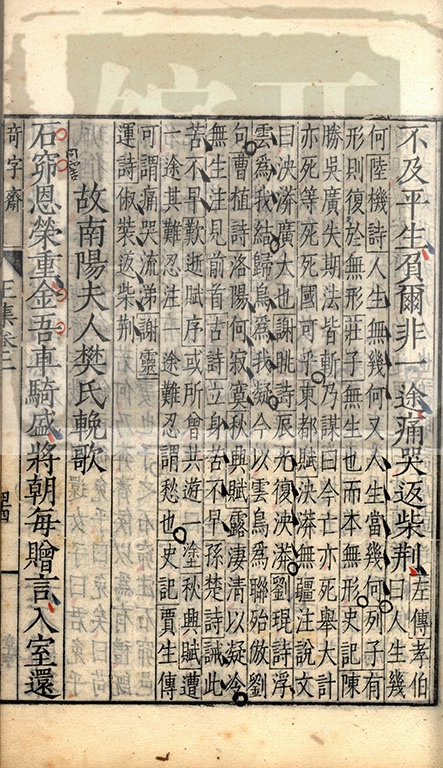 不及平生貿爾非一途痛哭返柴荆
左傳孝伯
曰人生幾
何陸機詩人生無幾何又人生當幾何列子有
形則復於無形莊子無生也而本無形史記陳
勝吳廣失期法皆斬乃謀曰今亡亦死舉大計
亦死等死死國可乎東都賦泱漭無疆注說文
曰泱漭廣大也謝眺詩辰光復泱漭劉琨詩浮
雲爲我結歸鳥爲我凝今以雲鳥爲聯始倣劉
句曹植詩洛陽何寂寞秋興賦露凄清以凝冷
無生注見前首古詩立身苦不早孫楚詩誡此
苦不早歎逝賦序或所曾共遊一塗秋興賦遭
一途其難忍注一途難忍謂愁也史記賈生傳
可謂痛哭流涕謝靈
運詩俶裝返柴荆
故南陽夫人樊氏輓歌
石窌恩榮重金吾車騎盛將朝每贈言入室還
奇字齋
王集卷三